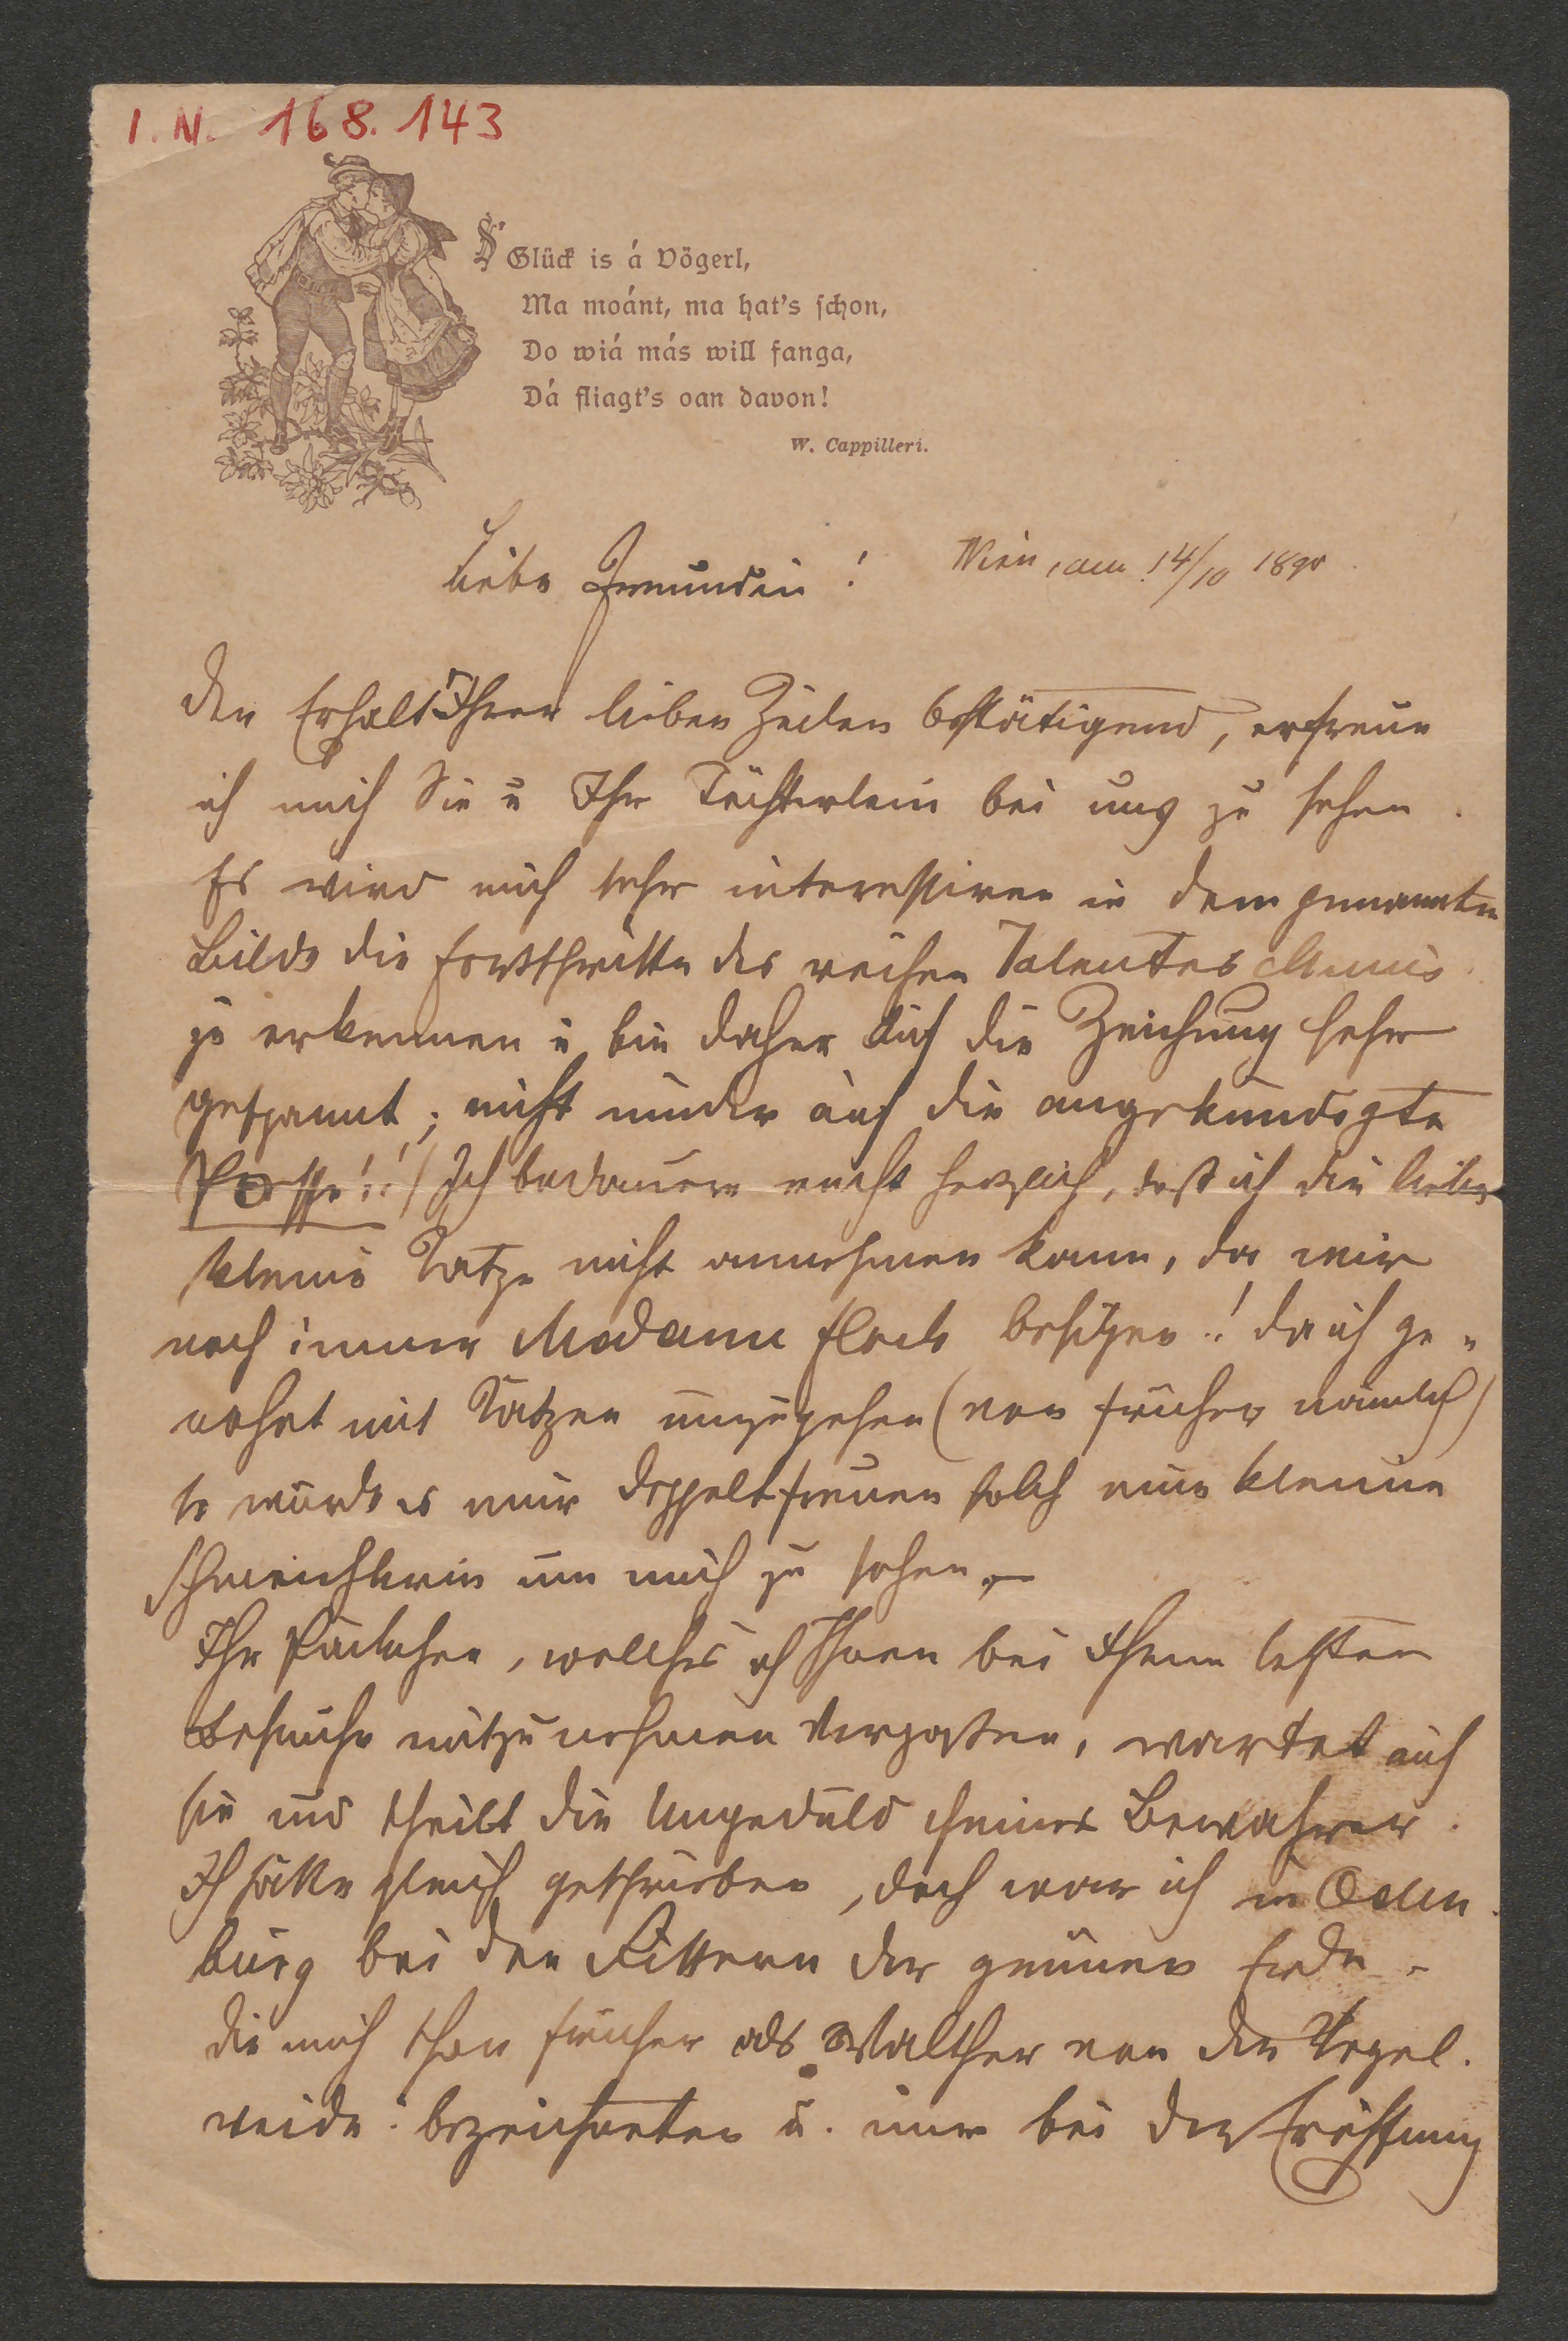 I. N. 168.143
's Glück is á Vögerl,
Ma moánt, ma hat's schon,
Do wiá más will fanga,
Dá fliagt's oan davon!
W. Cappilleri.
Liebe Freundin! Wien, am 14/10 1890.
Den Erhalt Ihrer lieben Zeilen bestätigend, erfreue
ich mich Sie u Ihr Töchterlein bei uns zu sehen.
Es wird mich sehr interessiren in dem genannten
Bilde die Fortschritte des reichen Talentes
zu erkennen u bin daher auf die Zeichnung sehr
gespannt; nicht minder auf die angekündigte
Posse!!! Ich bedauere recht herzlich, daß ich die liebe
kleine Katze nicht annehmen kann, da wir
noch immer Madame Flock besitzen! da ich ge-
wohnt mit Katzen umzugehen (von früher nämlich)
so würde es mir doppelt freuen solch eine kleine
Schmeichlerin um mich zu sehen.
Ihr Päckchen, welches Ihnen bei Ihrem letzten
Besuche mitzunehmen vergaßen, wartet auf
sie und theilt die Ungeduld seines Bewahrer.
Ich hätte gleich geschrieben, doch war ich in Oeden
burg bei den Rittern der grünen Erde
die mich schon früher als Walther von der Vogel.
weide bezeichneten u. nun bei der Eröffnung